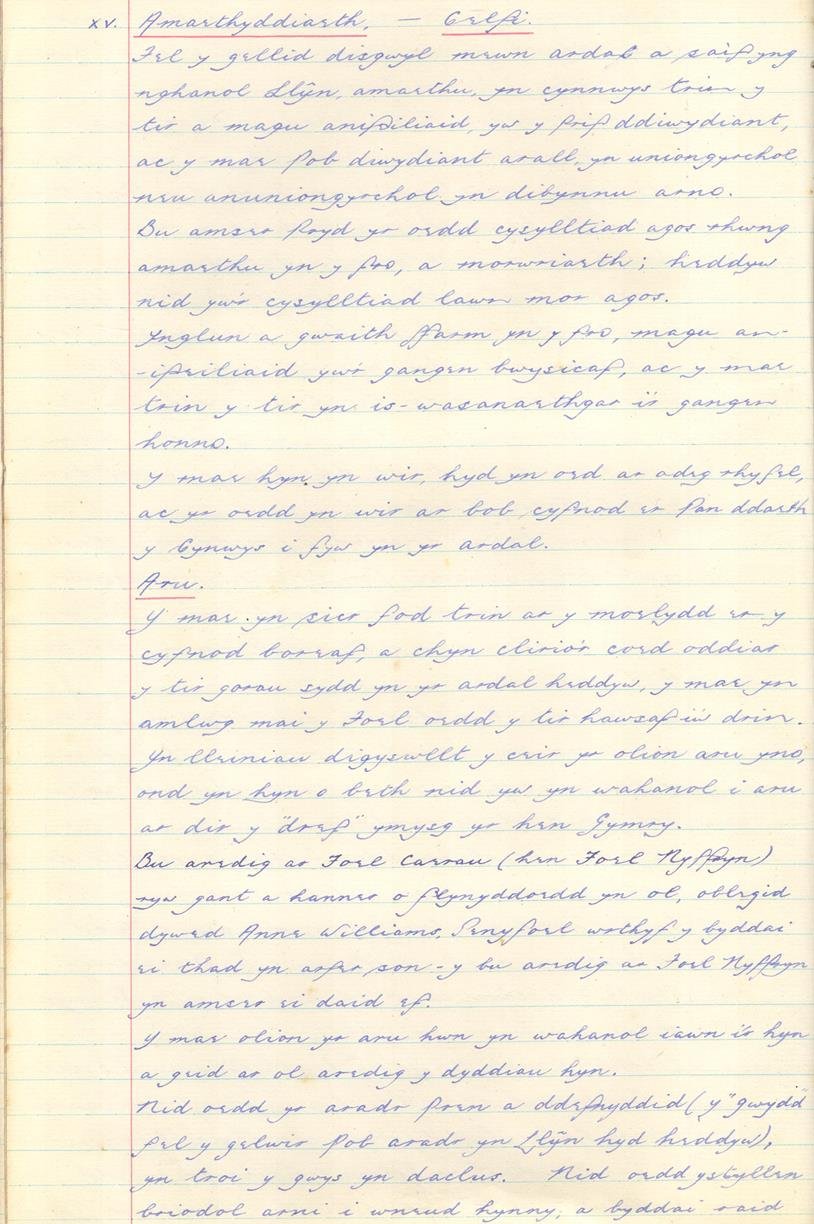 xv. Amaethyddiaeth, — Celfi.
Fel y gellid disgwyl mewn ardal a saif yng
nghanol Llŷn, amaethu, yn cynnwys trin y
tir a magu anifiliaid, yw y prif ddiwydiant,
ac y mae pob diwydiant arall, yn uniongyrchol
neu anuniongyrchol yn dibynnu arno.
Bu amser pryd yr oedd cysylltiad agos rhwng
amaethu yn y fro, a morwriaeth; heddyw
nid yw'r cysylltiad lawn mor agos.
Ynglun a gwaith ffarm yn y fro, magu an-
-ifeiliaid yw'r gangen bwysicaf, ac y mae
trin y tir yn is-wasanaethgar i'r gangen
honno.
Y mae hyn yn wir, hyd yn oed ar adeg rhyfel,
ac yr oedd yn wir ar bob cyfnod er pan ddaeth
y Cynwys i fyw yn yr ardal.
Aru.
Y mae yn sicr fod trin ar y moelydd er y
cyfnod boreaf, a chyn clirio'r coed oddiar
y tir gorau sydd yn yr ardal heddyw, y mae yn
amlwg mai y Foel oedd y tir hawsaf i'w drin.
Yn lleiniau digyswllt y ceir yr olion aru yno,
ond yn hyn o beth nid yw yn wahanol i aru
ar dir y "dref" ymysg yr hen Gymry.
Bu aredig ar Foel Caerau (hen Foel Nyffryn)
ryw gant a hanner o flynyddoedd yn ol, oblegid
dywed Anne Williams, Penyfoel wrthyf y byddai
ei thad yn arfer son - y bu aredig ar Foel Nyffryn
yn amser ei daid ef.
Y mae olion yr aru hwn yn wahanol iawn i'r hyn
a geid ar ol aredig y dyddiau hyn.
Nid oedd yr aradr pren a ddefnyddid (y "gwydd"
fel y gelwir pob aradr yn Llŷn hyd heddyw),
yn troi y gwys yn daclus. Nid oedd ystyllen
briodol arni i wneud hynny, a byddai raid